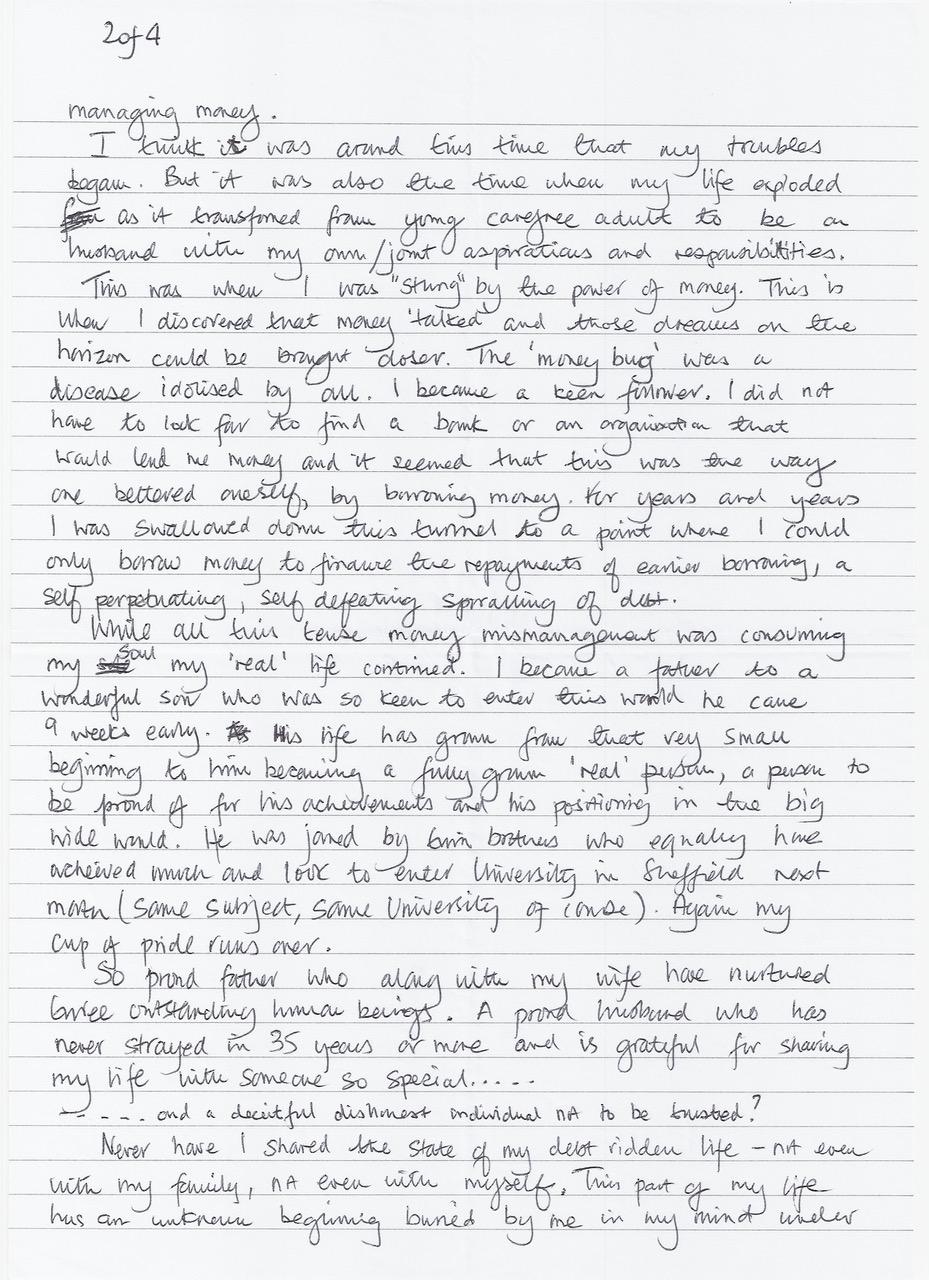 2 of 4
managing money.
I think it was around this time that my troubles
began. But it was also the time when my life exploded
as it transformed from young carefree adult to be a
husband with my own/joint aspirations and responsibilities.
This was when I was "stung" by the power of money. This is
when I discovered that money 'talked' and those dreams on the
horizon could be brought closer. The 'money bug' was a
disease idolised by all. I became a keen follower. I did not
have to look far to find a bank or an organisation that
would lend me money and it seemed that this was the way
one bettered oneself, by borrowing money. For years and years
I was swallowed down this tunnel to a point where I could
only borrow money to finance the repayments of earlier borrowing, a
self perpetuating, self defeating spiralling of debt.
While all this tense money mismanagement was consuming
my soul my 'real' life continued. I became a father to a
wonderful son who was so keen to enter this world he came
9 weeks early. His life has grown from that very small
beginning to him becoming a fully grown 'real' person, a person to
be proud of for his achievements and his positioning in the big
wide world. He was joined by twin brothers who equally have
achieved much and look to enter University in Sheffield next
month (same subject, same University of course). Again my
cup of pride runs over.
So proud father who along with my wife have nurtured
three outstanding human beings. A proud husband who has
never strayed in 35 years or more and is grateful for sharing
my life with someone so special.....
- - - - . and a deceitful dishonest individual not to be trusted?
Never have I shared the state of my debt ridden life - not even
with my family, not even with myself. This part of my life
has an unknown beginning buried by me in my mind under